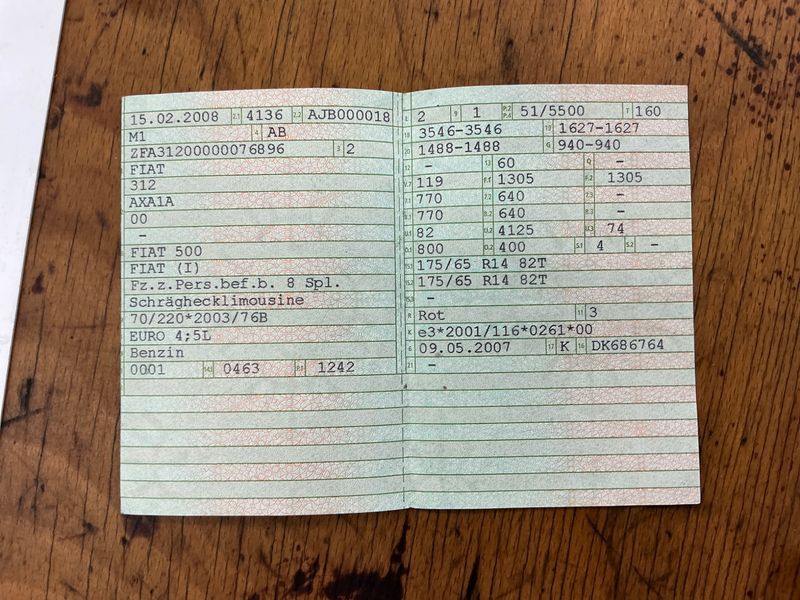 15.02.2008 2.1 4136 2.2 AJB000018
M1 4 AB
ZFA31200000076896 3 2
FIAT
312
AXA1A
00
-
FIAT 500
FIAT (I)
Fz.z.Pers.bef.b. 8 Spl.
Schräghecklimousine
70/220*2003/76B
EURO 4;5L
Benzin
0001 14.1 0463 P.1 1242
L 2 9 1 P.2 P.4 51/5500 T 160
18 3546-3546 19 1627-1627
20 1488-1488 G 940-940
12 - 13 60 Q -
V.7 119 F.1 1305 F.2 1305
7.1 770 7.2 640 7.3 -
8.1 770 8.2 640 8.3 -
U.1 82 U.2 4125 U.3 74
O.1 800 O.2 400 S.1 4 S.2 -
15.1 175/65 R14 82T
15.2 175/65 R14 82T
15.3 -
R Rot 11 3
K e3*2001/116*0261*00
6 09.05.2007 17 K 16 DK686764
21 -